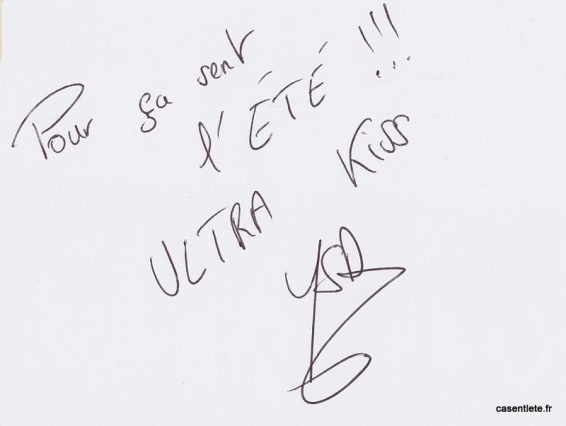 Pour ça sent
l'ÉTÉ !!!
ULTRA Kiss
casentlete.fr